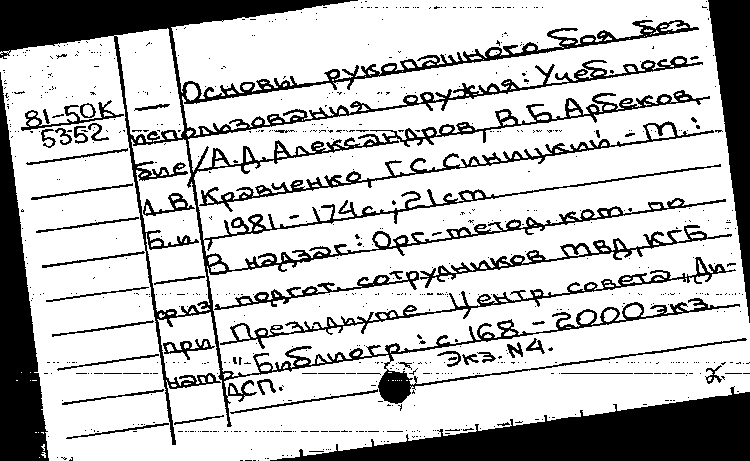 81-50К
5352
— Основы рукопашного боя без
использования оружия: Учеб. посо-
бие / А.Д. Александров, В.Б. Арбеков,
Л.В. Кравченко, Г.С. Синицкий. - М.:
Б.и., 1981. - 174 с.; 21 см.
В надзаг.: Орг.-метод. ком. по
физ. подгот. сотрудников МВД, КГБ
при Президиуме Центр. совета "Ди-
намо". Библиогр.: с. 168. - 2000 экз.
ДСП. Экз. N4.
2